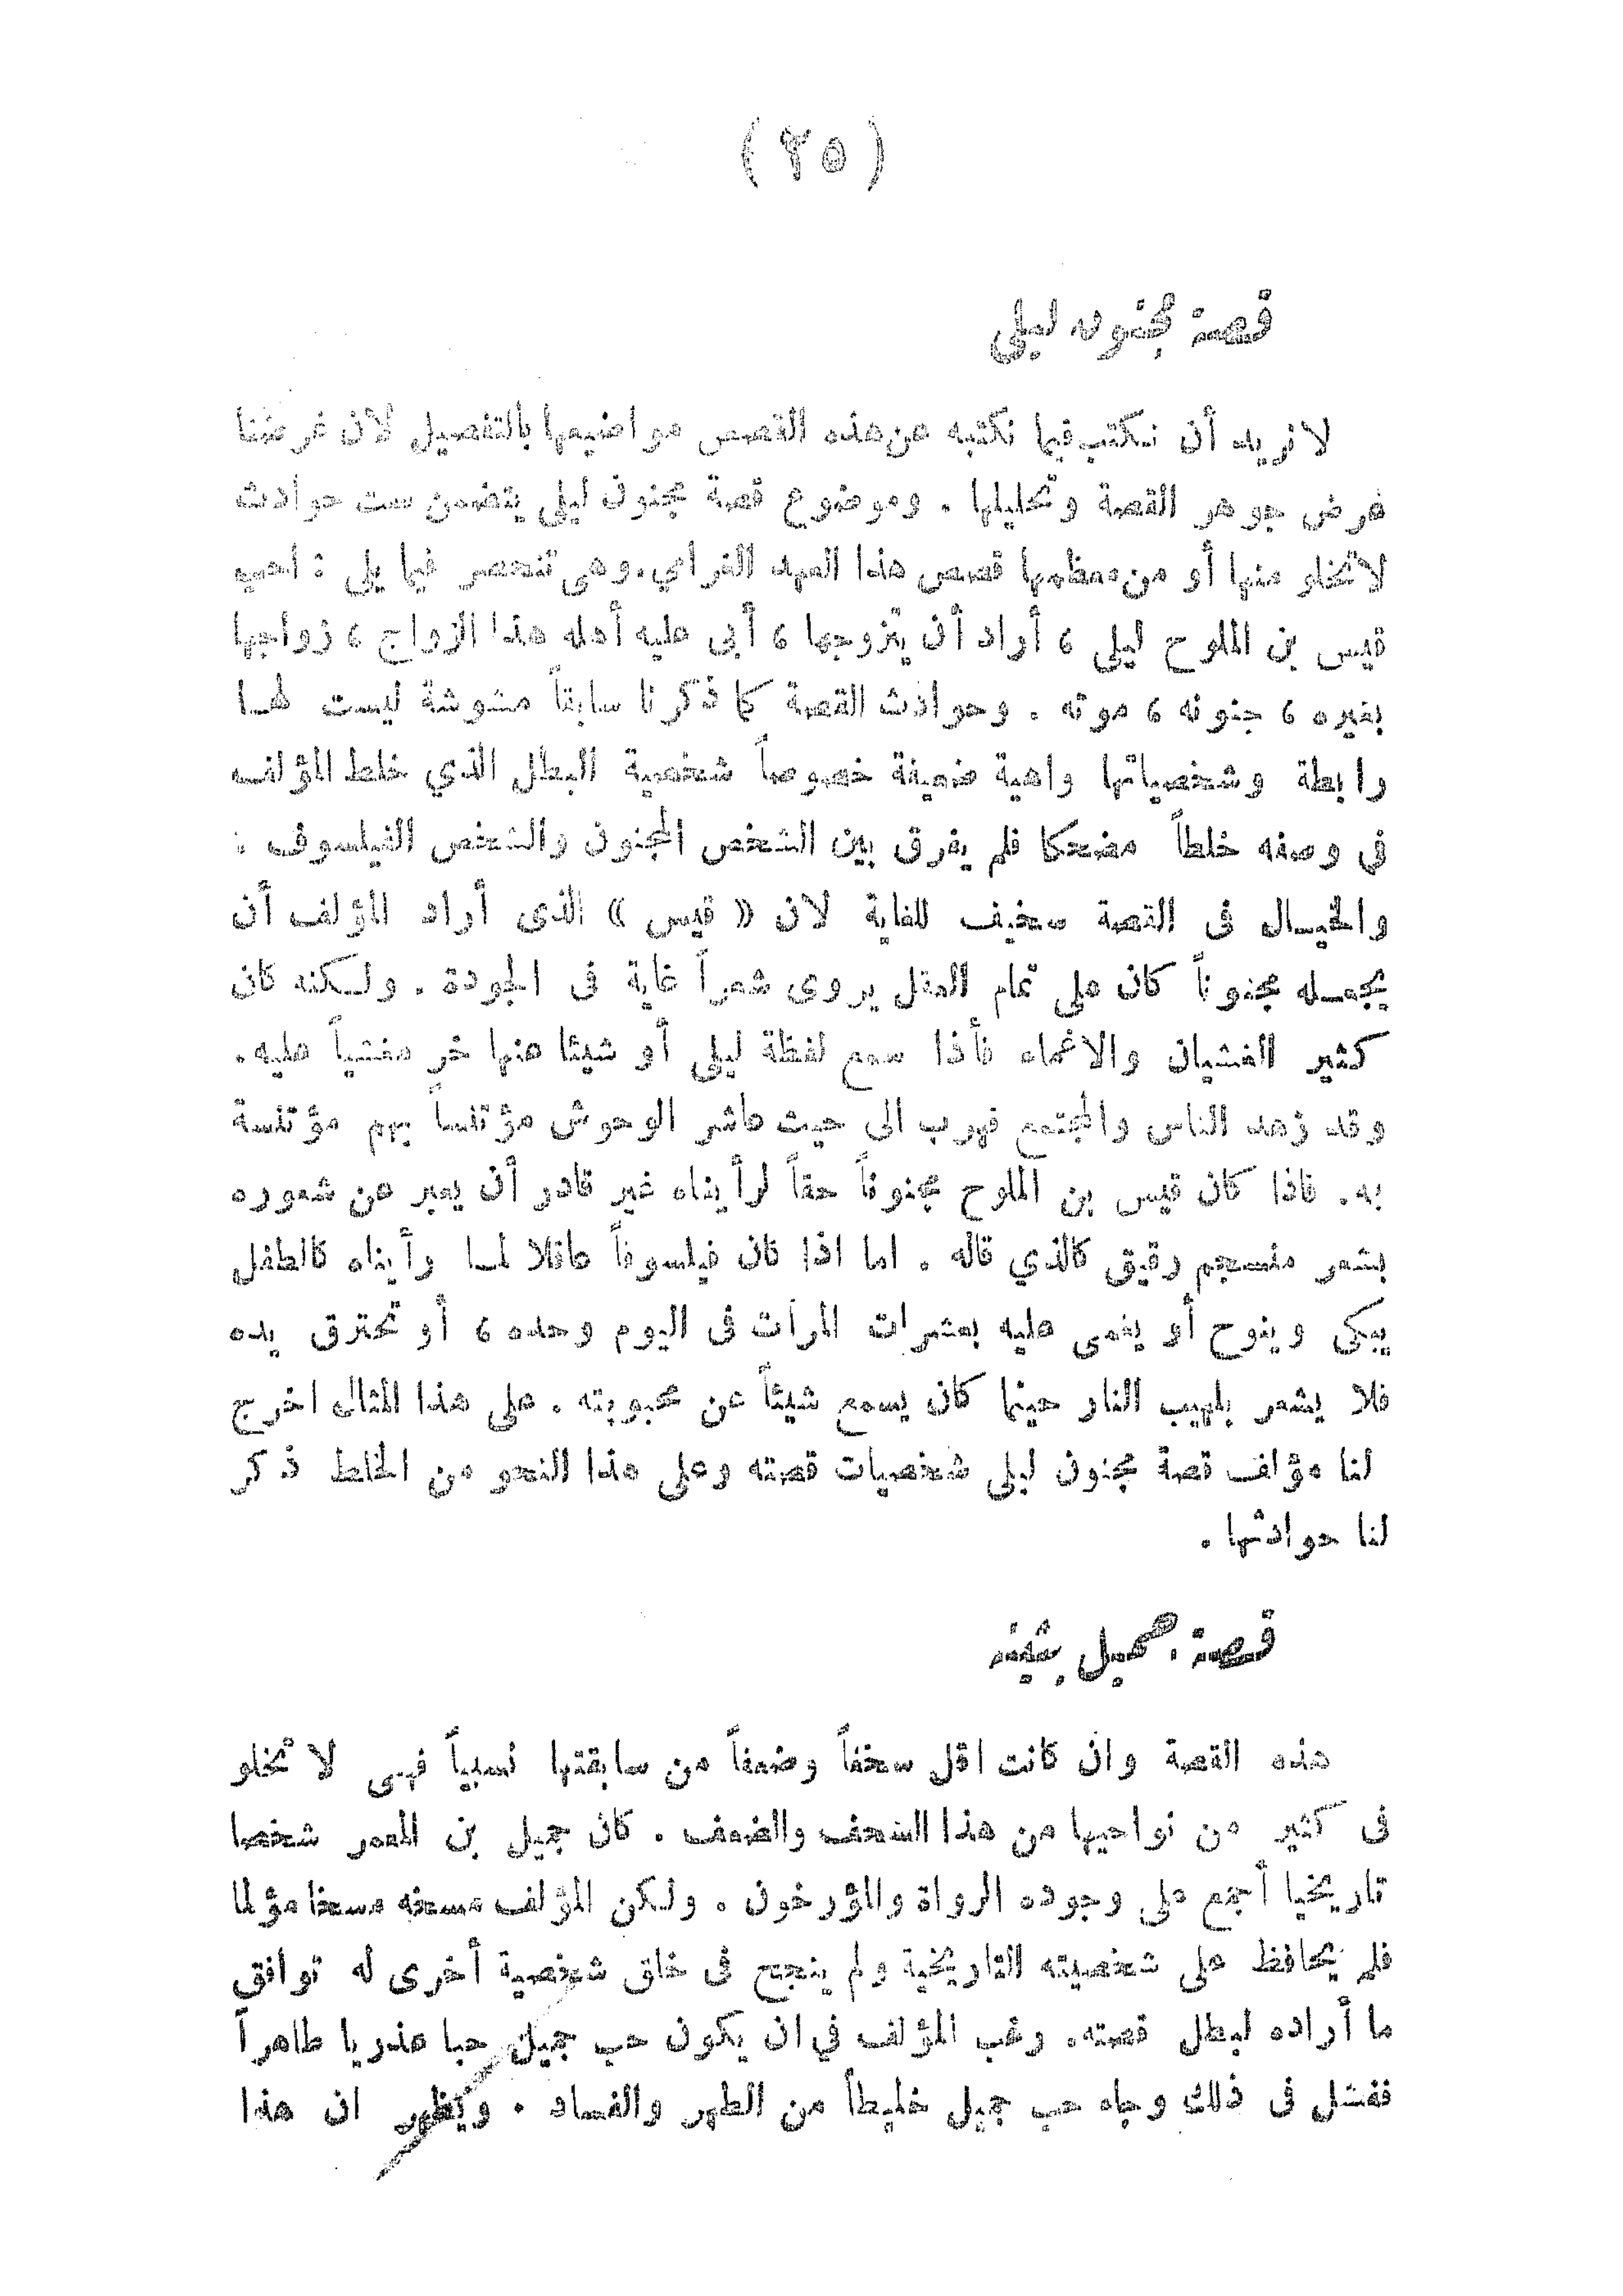 (٢٥)
قصة مجنون ليلى
لا نريد أن نكتب فيما نكتبه عن هذه القصص مواضيعها بالتفصيل لان غرضنا
عرض جوهر القصة وتحليلها . وموضوع قصة مجنون ليلى يتضمن ست حوادث
لا تخلو منها أو من معظمها قصص هذا العهد الغرامي . وهى تنحصر فيما يلى : احب
قيس بن الملوح ليلى ، أراد أن يتزوجها ، أبى عليه أهله هذا الزواج ، زواجها
بغيره ، جنونه ، موته . وحوادث القصة كما ذكرنا سابقاً مشوشة ليست لها
رابطة وشخصياتها واهية ضعيفة خصوصاً شخصية البطل الذي خلط المؤلف
فى وصفه خلطاً مضحكا فلم يفرق بين الشخص المجنون والشخص الفيلسوف .
والخيال فى القصة سخيف للغاية لان « قيس » الذى أراد المؤلف أن
يجعله مجنوناً كان على تمام العقل يروى شعراً غاية فى الجودة . ولكنه كان
كثير الغشيان والاغماء فأذا سمع لفظة ليلى أو شيئا عنها خر مغشياً عليه .
وقد زهد الناس والمجتمع فهرب الى حيث عاشر الوحوش مؤتنساً بهم مؤتنسة
به . فاذا كان قيس بن الملوح مجنوناً حقاً لرأيناه غير قادر أن يعبر عن شعوره
بشعر منسجم رقيق كالذي قاله . اما اذا كان فيلسوفاً عاقلا لما رأيناه كالطفل
يبكى وينوح أو يغمى عليه بعشرات المرات فى اليوم وحده ، أو تحترق يده
فلا يشعر بلهيب النار حينما كان يسمع شيئاً عن محبوبته . على هذا المثال اخرج
لنا مؤلف قصة مجنون ليلى شخصيات قصته وعلى هذا النحو من الخلط ذكر
لنا حوادثها .
قصة جميل بثينه
هذه القصة وان كانت اقل سخفاً وضعفاً من سابقتها نسبياً فهى لا تخلو
فى كثير من نواحيها من هذا السخف والضعف . كان جميل بن المعمر شخصا
تاريخيا أجمع على وجوده الرواة والمؤرخون . ولكن المؤلف مسخه مسخا مؤلما
فلم يحافظ على شخصيته التاريخية ولم ينجح فى خلق شخصية أخرى له توافق
ما أراده لبطل قصته . رغب المؤلف في ان يكون حب جميل حبا عذريا طاهراً
ففشل فى ذلك وجاء حب جميل خليطاً من الطهر والفساد . ويظهر ان هذا